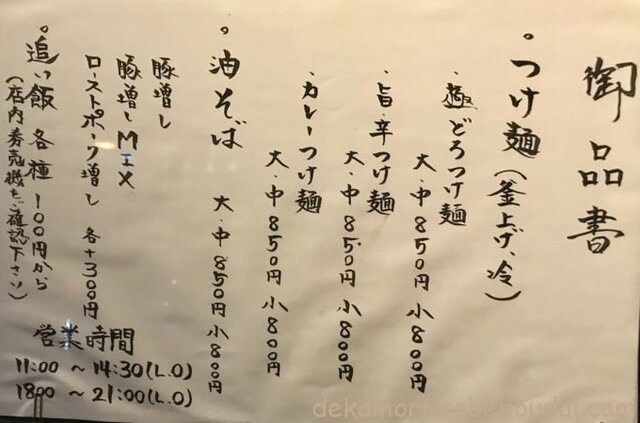 御品書
。つけ麺(釜上げ、冷)
・極どろつけ麺
大・中850円 小800円
・旨辛つけ麺
大・中850円 小800円
・カレーつけ麺
大・中850円 小800円
。油そば
大・中850円 小800円
豚増し
豚増しMIX
ローストポーク増し 各+300円
。追い飯各種 100円から
(店内券売機をご確認下さい)
営業時間
11:00 ~ 14:30(L.O)
18:00 ~ 21:00(L.O)